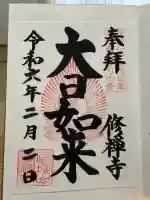 奉拝
大日如来
修禅寺
令和六年二月二日